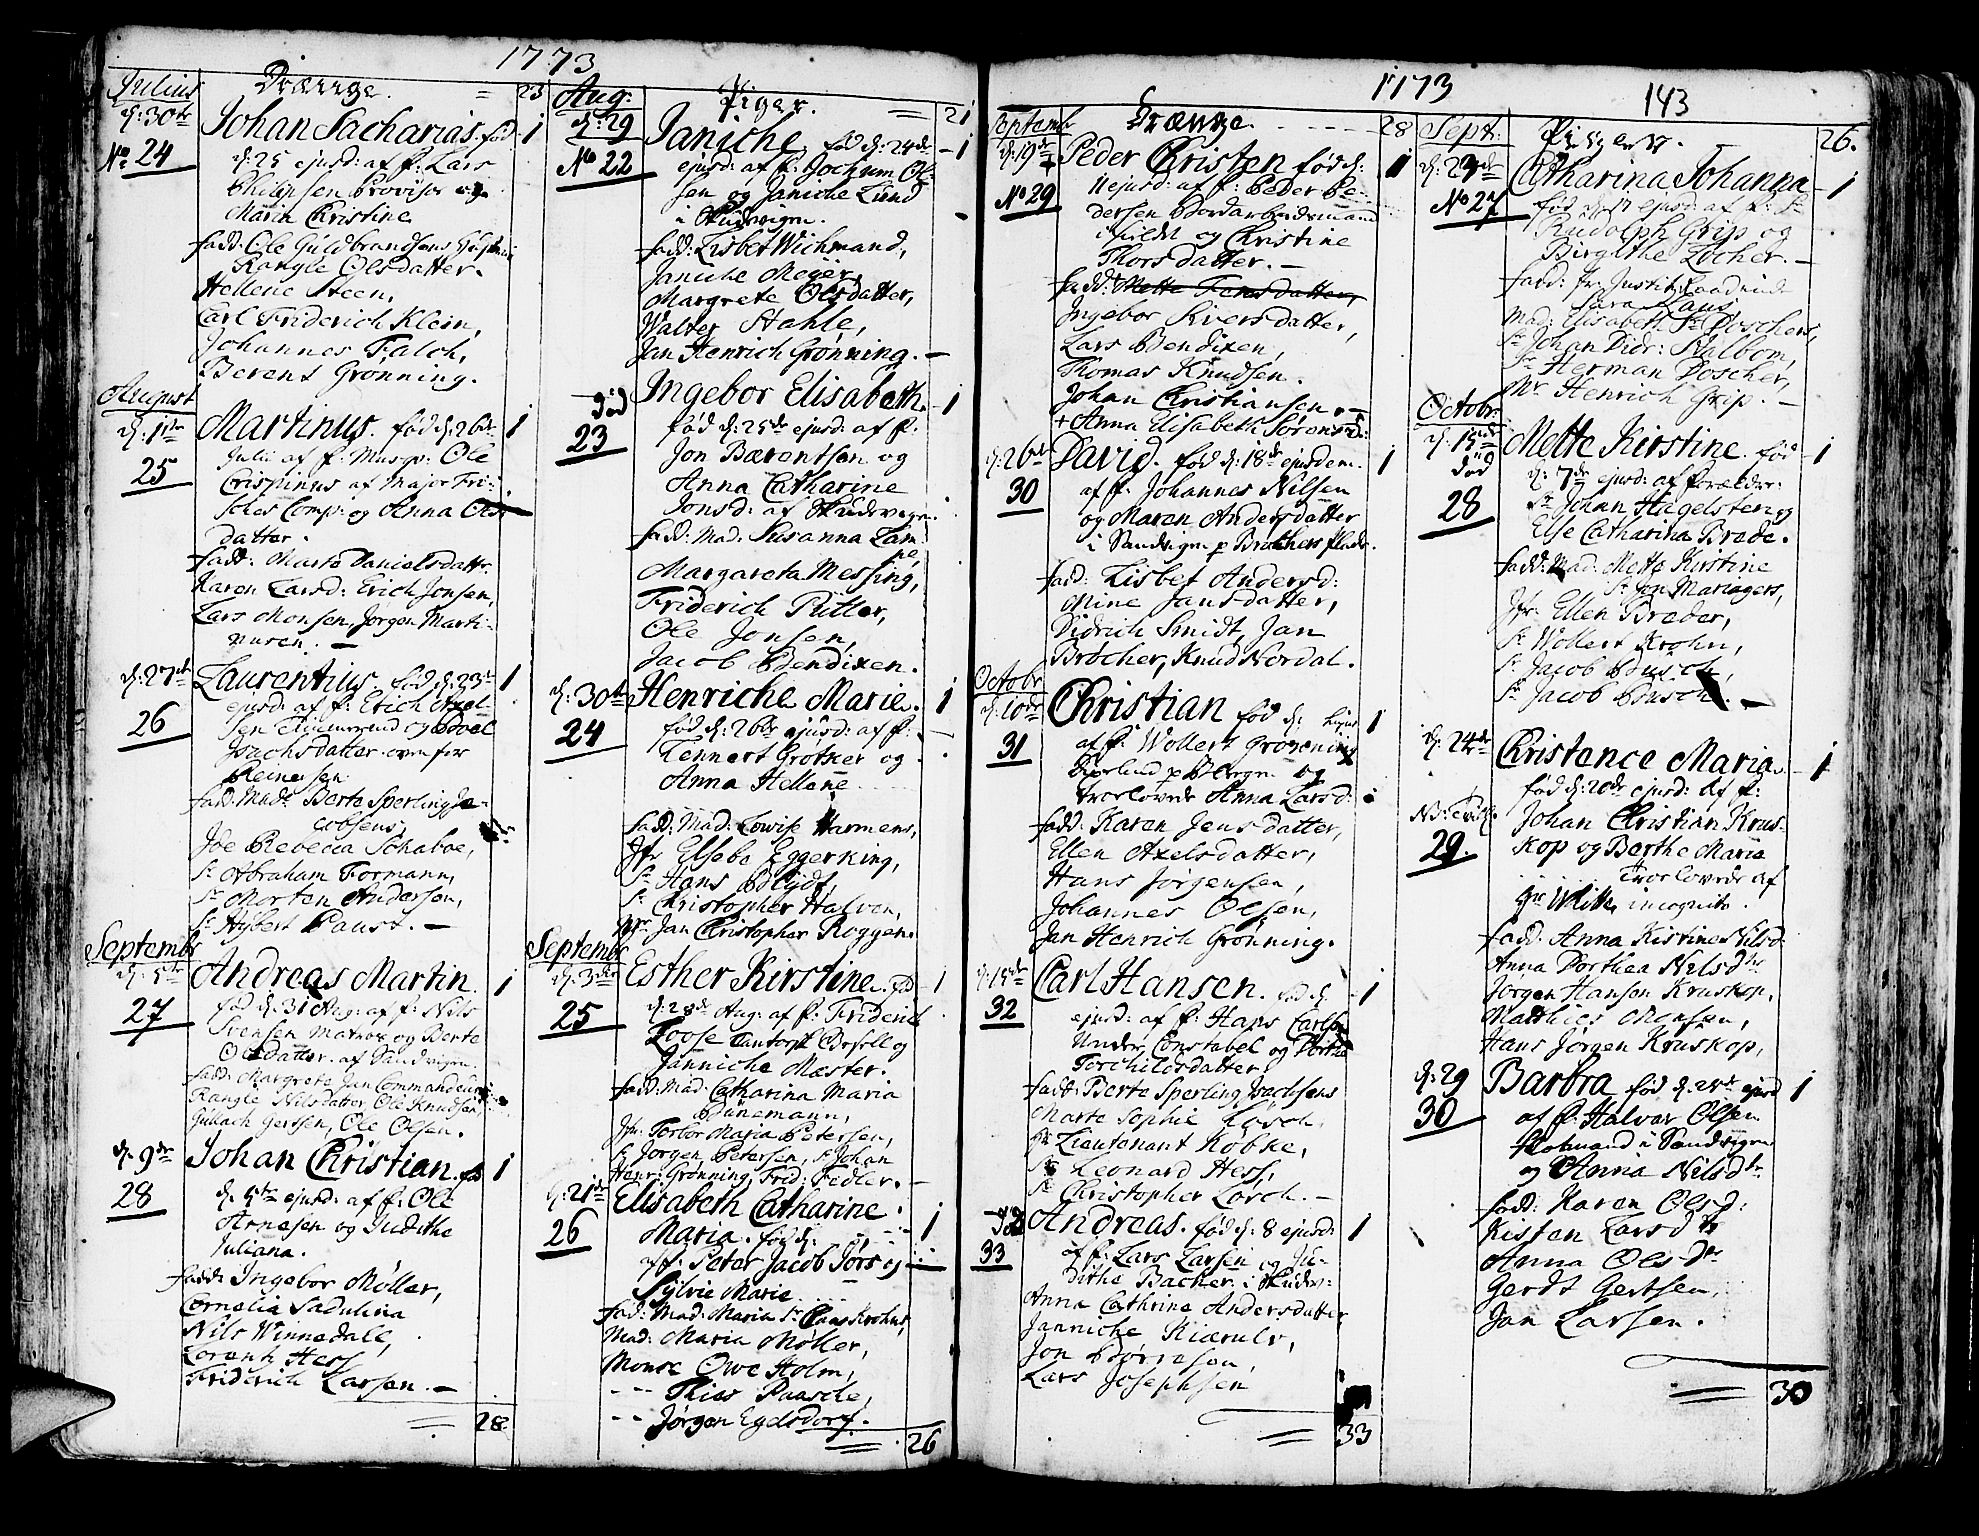 1773
Julius Drænge. = 23
d: 30te Johan Sacharias. fød 1
No 24 d: 25 ejusd: af f: Lars
Philipsen Provisor og
Maria Christine
fadd: Ole Guldbrandsens
Rangle Olsdatter.
Hellene Steen,
Carl Friderich Klein,
Johannes Falch,
Berent Grønning.
August
d: 1te Martinus. fød d: 26de 1
25 Julii af f: Musqr: Ole
Crispinus af Major Fri-
sches Comp: og Anna Ols-
datter.
fadd: Marte Danielsdattr.
Karen Larsd: Erich Jonsen,
Lars Monsen, Jørgen Marti-
nusen. —
d: 27de Laurentius fød d: 23de 1
26 ejusd: af f: Erich Axel-
sen og Boel
Isachsdatter ovenfor
Reinersen
fadd: Mad: Berte Sperling Ja-
cobsens,
Joe Rebecca Schaboe,
Sr Abraham Formann,
Sr Morten Andersen,
Sr Hybert Paust. —
Septembr
d: 5te Andreas Martin. 1
27 fød d: 31 Aug: af f: Nils
Svensen Matros og Berte
Olsdatter. af Sandvigen.
fadd: Margrete Jan Commandeurs
Rangle Nilsdatter, Ole Knudsen,
Gullach Gertsen, Ole Olsen.
d: 9de Johan Christian. fød 1
28 d: 5te ejusd: af f: Ole
Arnesen og Judithe
Juliana.
fadd: Ingebor Møller,
Cornelia Sadulina
Nils Winnedale,
Lorentz Hess
Friderich Larsen. —
= 28
Aug: Piger. = 21
d: 29 Janiche, fød d: 24de 1
No 22 ejusd: af f: Jochum Ol-
sen og Janiche Lund
i Skudevigen.
fadd: Lisbet Wichmand,
Janiche Meyer,
Margrete Olsdatter,
Walter Stahle,
Jan Henrich Grønning. —
død Ingebor Elisabeth. 1
23 fød d: 25de ejusd: af f:
Jon Bærentsen og
Anna Catharine
Jonsd: af Skudevigen.
fadd: Mad: Susanna Lam-
pe,
Margareta Messing,
Friderich Ritter,
Ole Jonsen,
Jacob Bendixen.
d: 30te Henriche Marie. 1
24 fød d: 26de ejusd: af f:
Lennert Grotker og
Anna Hellene
fadd: Mad: Lowise Harmens,
Jfr Elsebe Eggerking,
Sr Hans Blÿdt,
Sr Christopher Halven,
Mr Jan Christopher Roggen.
Septembr
d: 3de Esther Kirstine. fød 1
25 d: 28de Aug: af f: Friderich
Loose og
Janniche Mæster.
fadd: Mad: Catharina Maria
Bünemann,
Jfr: Torbor Maria Petersen,
Sr Jorgen Petersen, Sr Johan
Henr: Grønning, Frid: Fedler. —
d: 21de Elisabeth Catharine
26 Maria. fød d: 1
af f: Peter Jacob Jørs og
Sylvie Marie
fad: Mad: Maria Sr Claus Krohns,
Mad: Maria Møller,
Monsr Owe Holm,
-- Thies Paasche,
-- Jørgen Egelsdorf.
= 26
1773
143
Septembr Drænge. 28
d: 19de Peder Christen fød d: 1
No 29 11 ejusd: af f: Peder Pe-
dersen
og Christine
Thorsdatter. —
fadd: Mette Tensdatter,
Ingebor Iversdatter,
Lars Bendixen,
Thomas Knudsen.
Johan Christiansen. —
+ Anna Elisabeth Sørensd:
d: 26de David. fød d: 18de ejusdem. 1
30 af f: Johannes Nilsen
og Maren Andersdatter
i Sandvigen p Brøchers plads.
fadd: Lisbet Andersd:
Mine Jansdatter,
Didrich Smidt, Jan
Brøcher, Knud Nordal.
Octobr
d: 10de Christian fød d: 1
31 af f: Wollert Grønning
p Bergen og
trolovede Anna Larsd:
fadd: Karen Jensdatter,
Ellen Axelsdatter,
Hans Jørgensen,
Johannes Olsen,
Jan Henrich Grønning.
d: 15de Carl Hansen. fød d: 1
32 ejusd: af f: Hans Carlsen
Under Constabel og Dorthe
Torchildsdatter,
fadd: Berte Sperling Isachsens
Marte Sophie Losch,
Hr Lieutenant Kobke,
Sr Leonard Hess,
Sr Christopher Lorch. —
død Andreas. fød d: 8 ejusd: 1
33 af f: Lars Larsen og Ju-
dithe Backer i Skudev:
Anna Cathrine Andersdatter
Janniche Kiærulv,
Jon Børresen,
Lars Josephsen
= 33
Sept: Pigen. 26.
d: 23de Catharina Johanna 1
No 27 fød d: 17 ejusd: af f: Sr
Rudolph Grip og
Birgithe Locher. —
fadd: Fr: Justitzraadinde
Sara Laus,
Mad: Elisabeth Sr Poschers,
Sr Johan Didr: Kalbom,
Sr Herman Poscher,
Mr Henrich Grip. —
Octobr:
d: 15de Mette Kirstine. fød 1
død d: 7de ejusd: af Forældre:
28 Sr Johan Hagelsten og
Else Catharina Brede.
fadd: Mad: Mette Kirstine
Sr Jon Mariagers,
Jfr: Ellen Breder,
Sr Wollert Krohn,
Sr Jacob Busch,
Sr Jacob Busch. —
d: 24de Christence Maria. 1
fød d: 20de ejusd: af f:
29. Johan Christian Krus-
kop og Berthe Maria
trolovede af
incognito.
fadd: Anna Kistine Nilsd:
Anna Dorthea Nilsdtr
Jørgen Hansen Kruskop,
Matthies Monsen,
Hans Jørgen Kruskop,
d: 29 Barbra fød d: 25de ejusd 1
30 af f: Halvar Olsen
i Sandvigen
og Anna Nilsdtr
fadd: Karen Olsd:
Kisten Larsdtr
Anna Olsdtr
Gerdt Gertsen,
Jan Larsen.
= 30